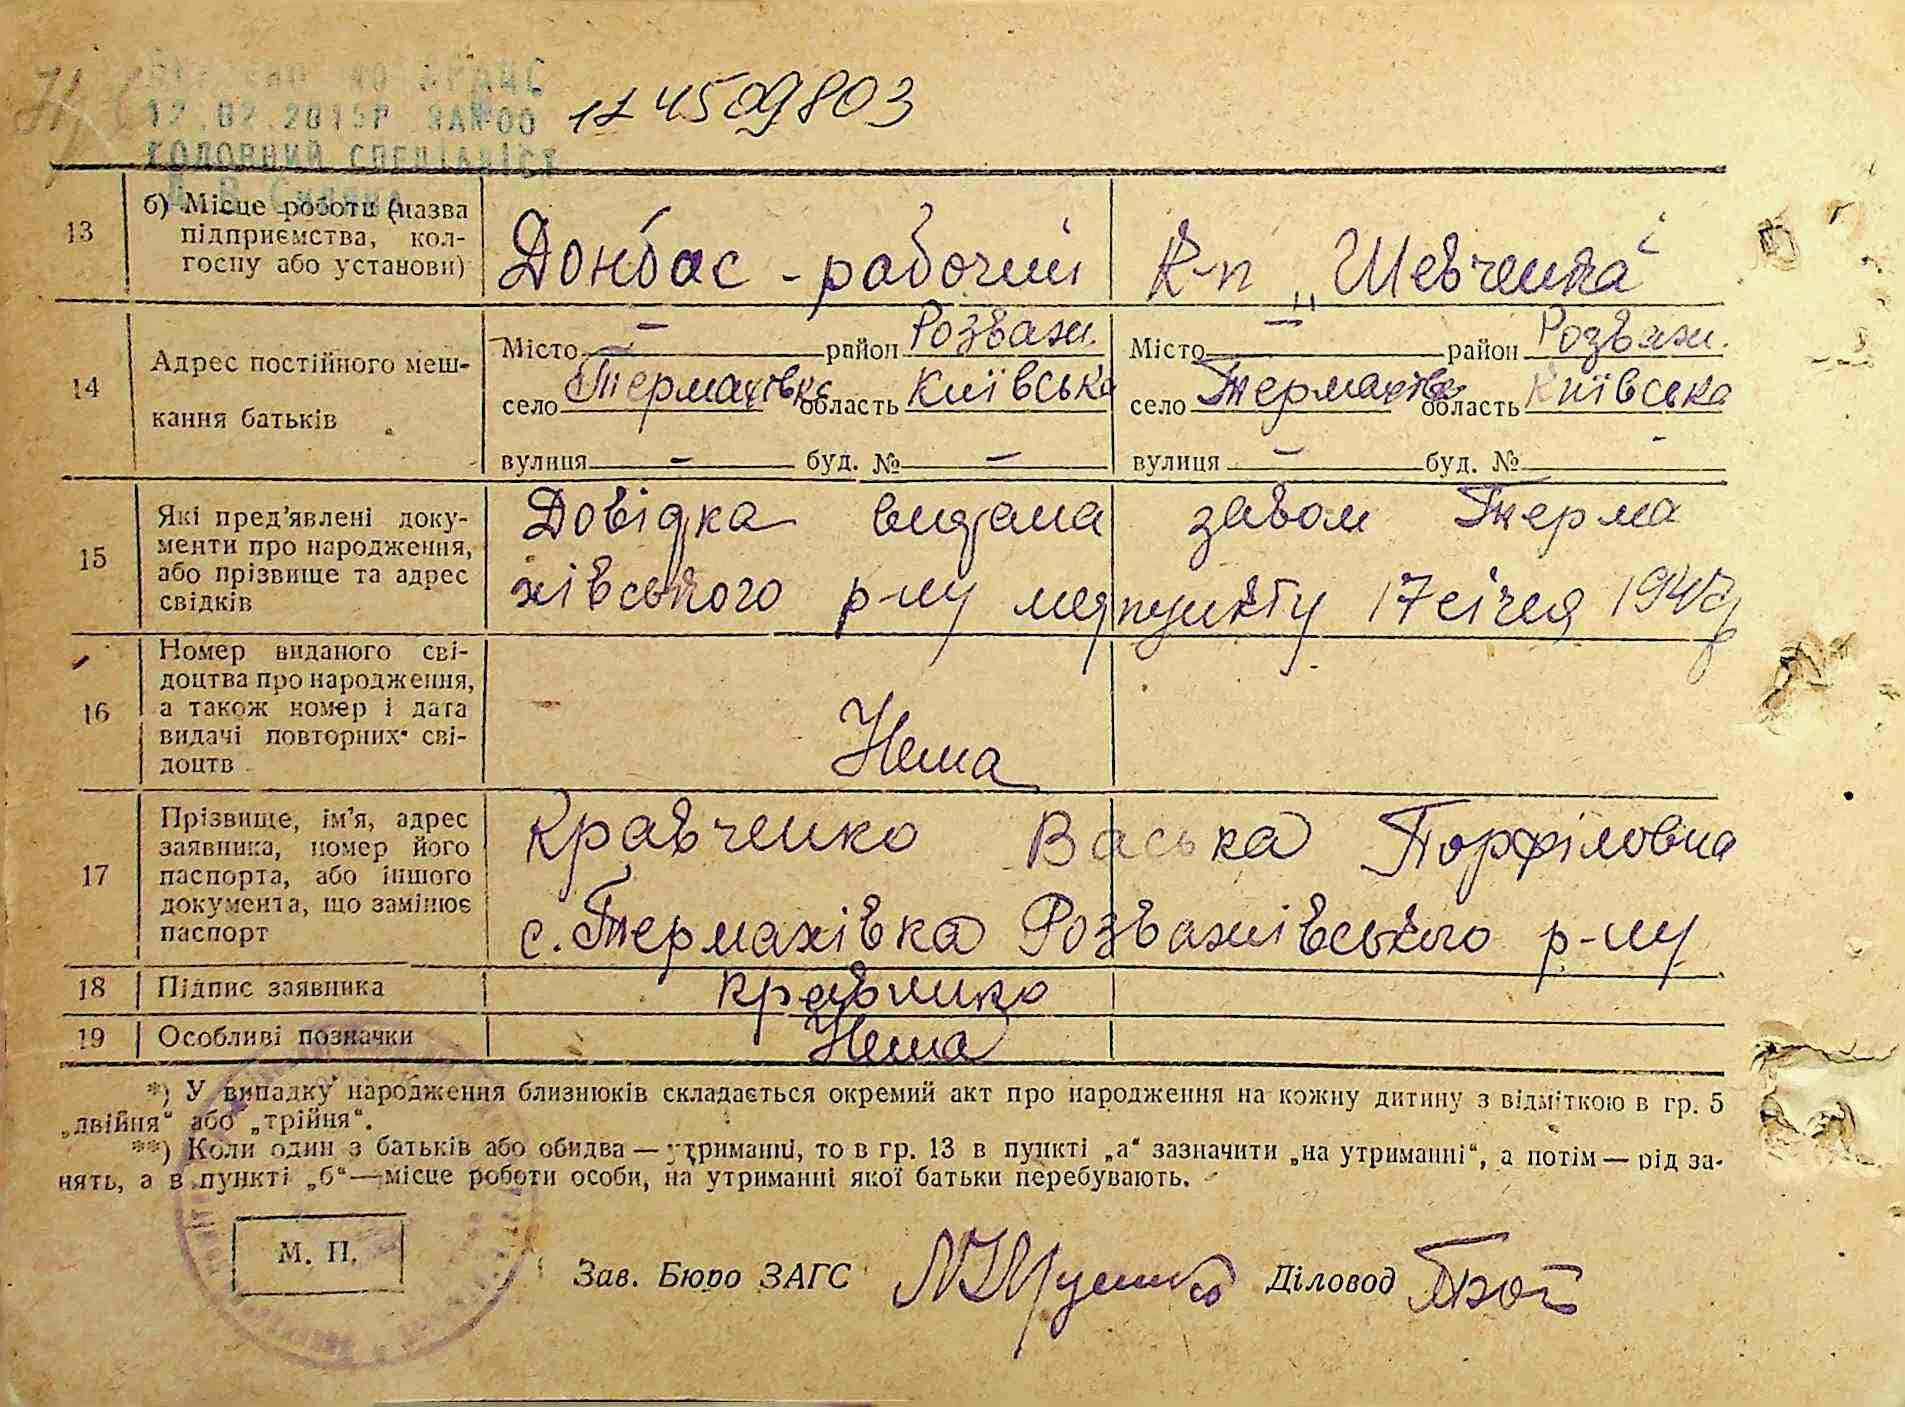 12.02.2015Р ЗА№00
ГОЛОВНИЙ СПЕЦІАЛІСТ
124509803
13
б) Місце роботи (назва підприємства, кол-
госпу або установи)
Донбас - рабочий
К-п „Шевченка"
14
Адрес постійного меш-
кання батьків
Місто — район Розваж.
село Термахівка область Київська
вулиця — буд. № —
Місто — район Розваж.
село Термахівка область Київська
вулиця — буд. № -
15
Які пред'явлені доку-
менти про народження,
або прізвище та адрес
свідків
Довідка видана завом Терма
хівського р-ну медпункту 17 січня
16
Номер виданого сві-
доцтва про народження,
а також номер і дата
видачі повторних сві-
доцтв
Нема
17
Прізвище, ім'я, адрес
заявника, номер його
паспорта, або іншого
документа, що замінює
паспорт
Кравченко Васька Порфіловна
с. Термахівка Розважівського р-ну
18
Підпис заявника
Кравченко
19
Особливі позначки
Нема
*) У випадку народження близнюків складається окремий акт про народження на кожну дитину з відміткою в гр. 5
„двійня" або „трійня".
**) Коли один з батьків або обидва — утриманці, то в гр. 13 в пункті „а" зазначити „на утриманні", а потім — рід за-
нять, а в пункті „б" — місце роботи особи, на утриманні якої батьки перебувають.
М. П.
Зав. Бюро ЗАГС
Діловод